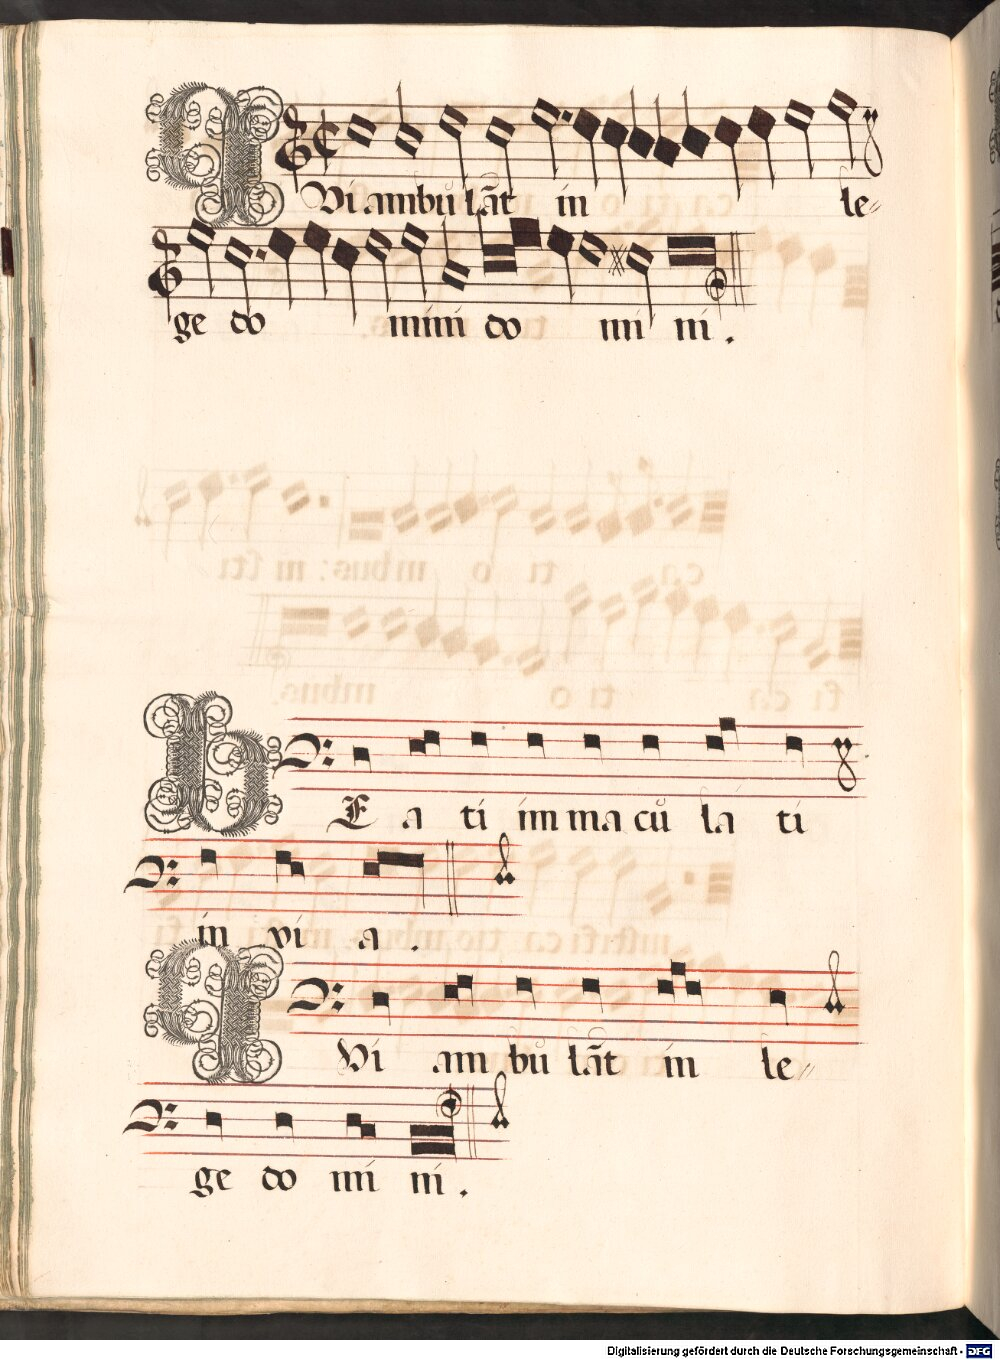 QVi ambulāt in le⸗
ge do mini do mi ni.
BE a ti im ma cu la ti
in vi a .
QVi am bu lāt in le⸗
ge do mi ni .
Digitalisierung gefördert durch die Deutsche Forschungsgemeinschaft - DFG